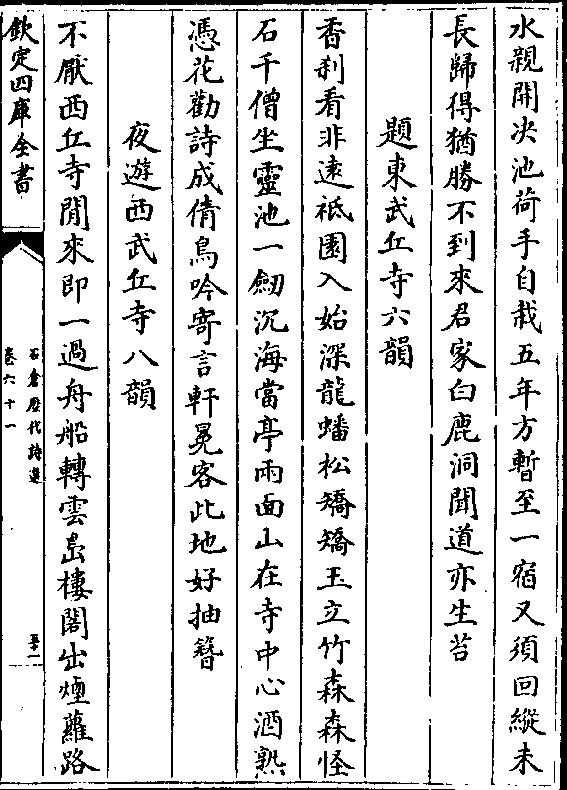 水親開决池荷手自栽五年方暫至一宿又須回縱未
長歸得猶勝不到來君家白鹿洞聞道亦生苔
題東武丘寺六韻
香刹看非遠祇園入始深龍蟠松矯矯玉立竹森森怪
石千僧坐靈池一劒沉海當亭兩面山在寺中心酒熟
憑花勸詩成倩鳥吟寄言軒冕客此地好抽簮
夜遊西武丘寺八韻
不厭西丘寺閒來即一過舟船轉雲島樓閣出煙蘿路
欽定四庫全書
石倉歷代詩選
卷六十一